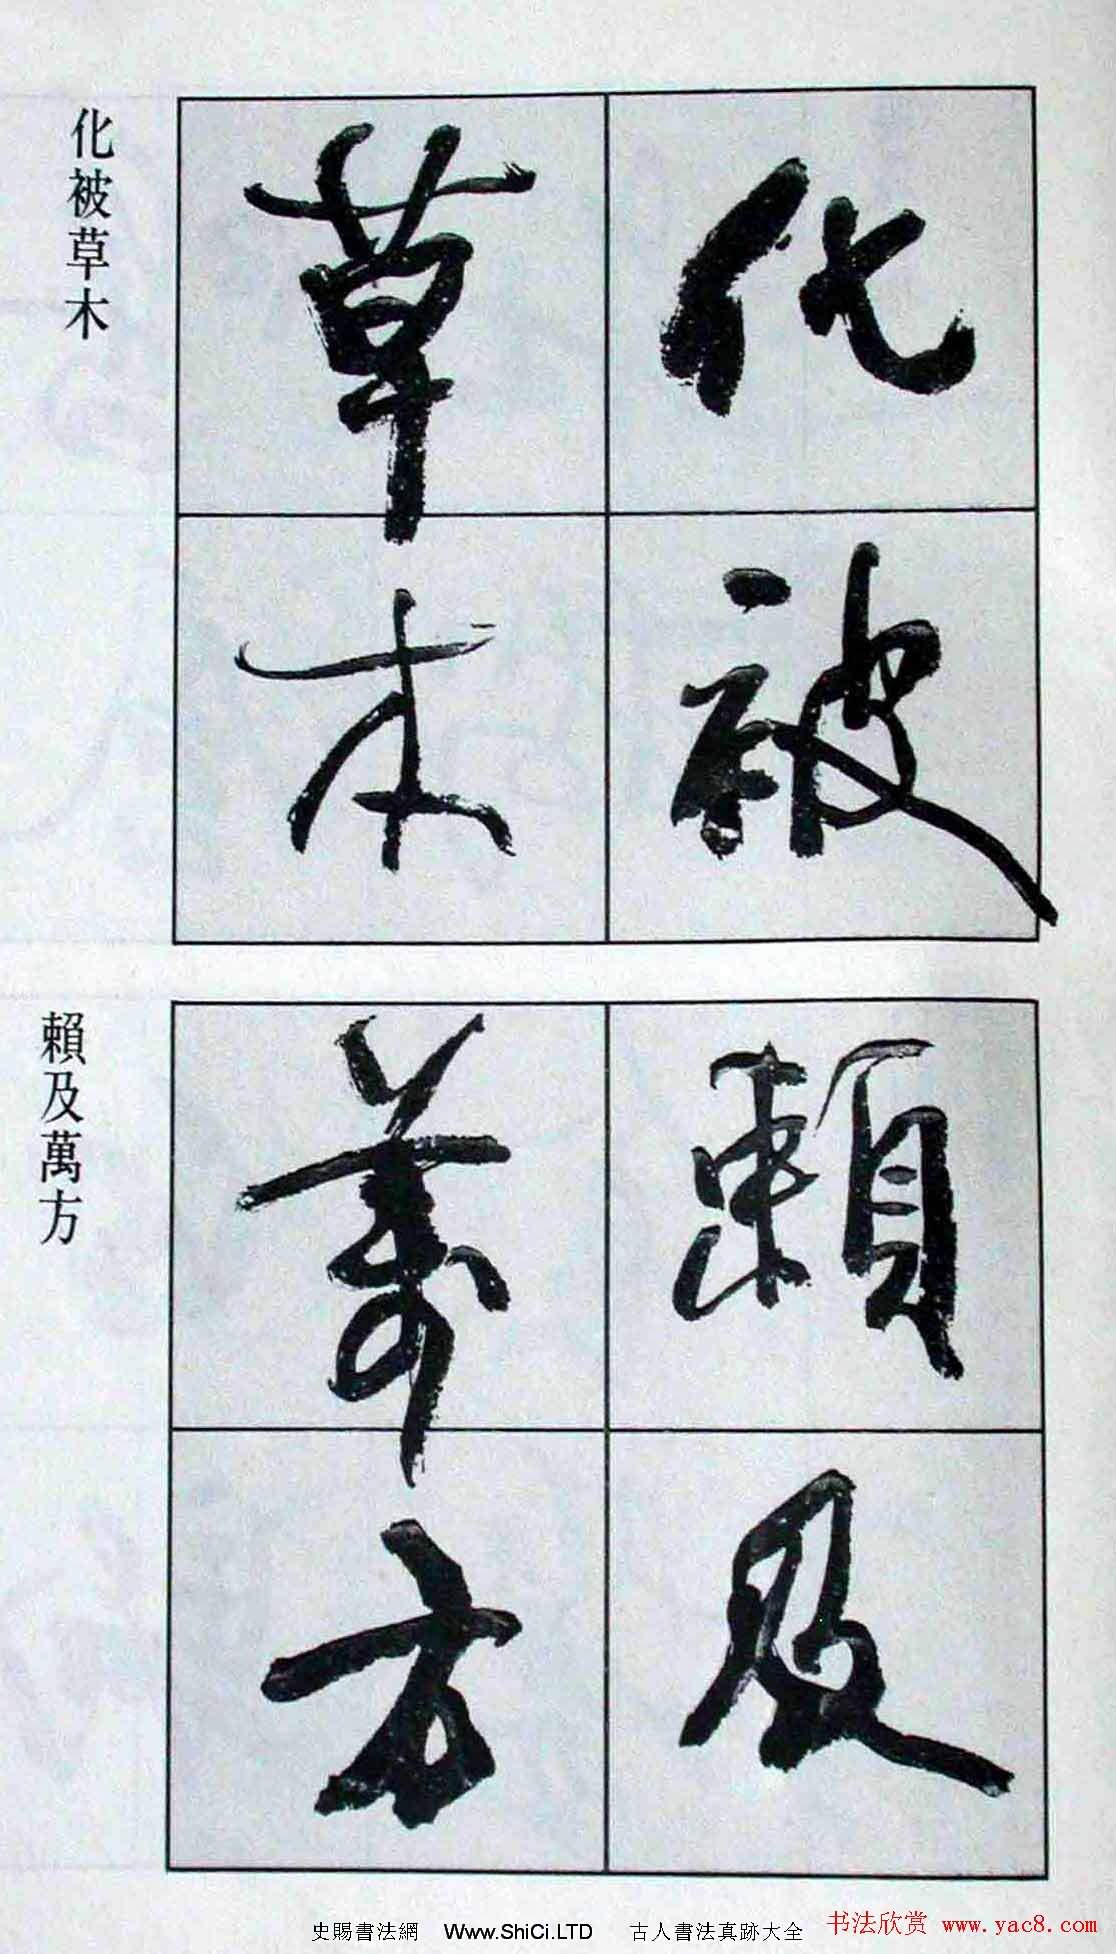 化被
草木
化被草木
賴及
萬方
賴及萬方
史賜書法網 Www.ShiCi.LTD 古人書法真跡大全
书法欣赏 www.yac8.com